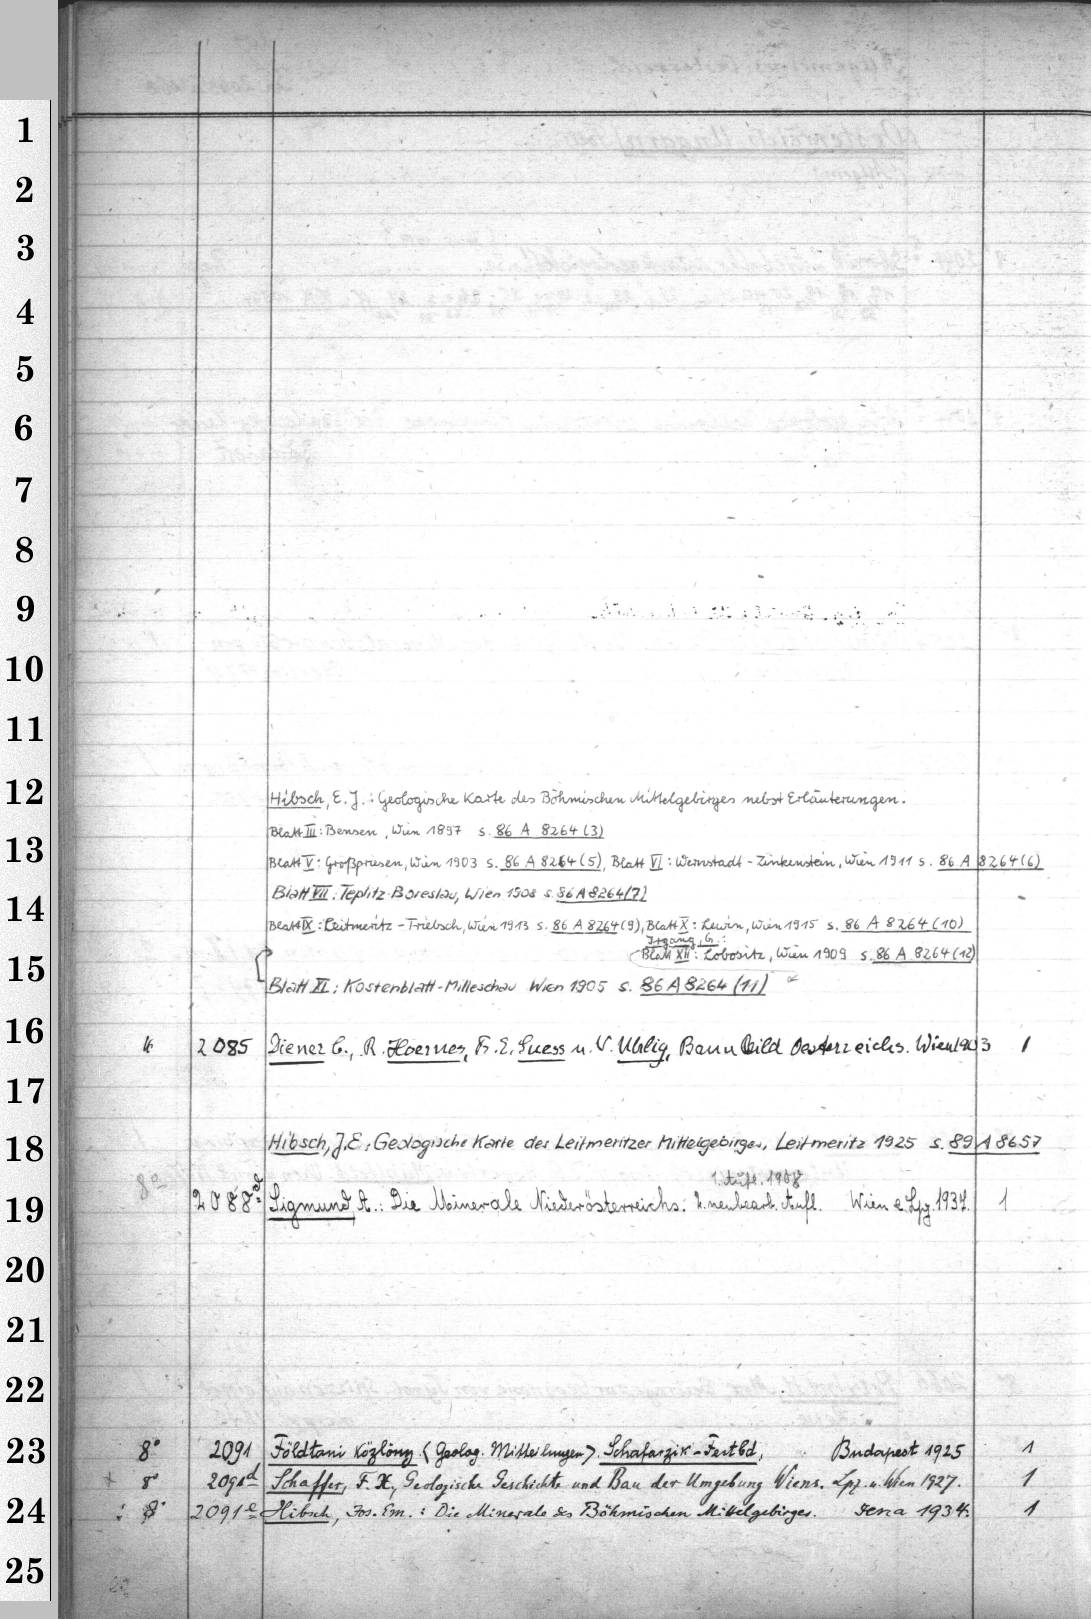 1
2
3
4
5
6
7
8
9
10
11
12
Hibsch, E. J.: Geologische Karte des Böhmischen Mittelgebirges nebst Erläuterungen.
Blatt III: Bensen, Wien 1897 s. 86 A 8264 (3)
13
Blatt V: Großpriesen, Wien 1903 s. 86 A 8264 (5), Blatt VI: Wernstadt - Zinkenstein, Wien 1911 s. 86 A 8264 (6)
Blatt VII: Teplitz-Boreslau, Wien 1908 s. 86 A 8264 (7)
14
Blatt IX: Leitmeritz - Triebsch, Wien 1913 s. 86 A 8264 (9), Blatt X: Lewin, Wien 1915 s. 86 A 8264 (10)
Irgang, G.:
15
Blatt XII: Lobositz, Wien 1909 s. 86 A 8264 (12)
Blatt XI: Kostenblatt-Milleschau Wien 1905 s. 86 A 8264 (11)
16
4 2085 Diener C., R. Hoernes, F. E. Suess u. V. Uhlig, Bau u. Bild Oesterreichs. Wien 1903 1
17
18
Hibsch, J. E.: Geologische Karte des Leitmeritzer Mittelgebirges, Leitmeritz 1925 s. 89 A 8657
1. Aufl. 1908
19
2088d Sigmund A.: Die Minerale Niederösterreichs. 2. neubearb. Aufl. Wien u. Lpz. 1937. 1
20
21
22
23
8° 2091 Földtani Közlöny (Geolog. Mitteilungen). Schafarzik-Festbd, Budapest 1925 1
8° 2091d Schaffer, F. X, Geologische Geschichte und Bau der Umgebung Wiens. Lpz. u. Wien 1927. 1
24
8° 2091e Hibsch, Jos. Em.: Die Minerale des Böhmischen Mittelgebirges. Jena 1934. 1
25